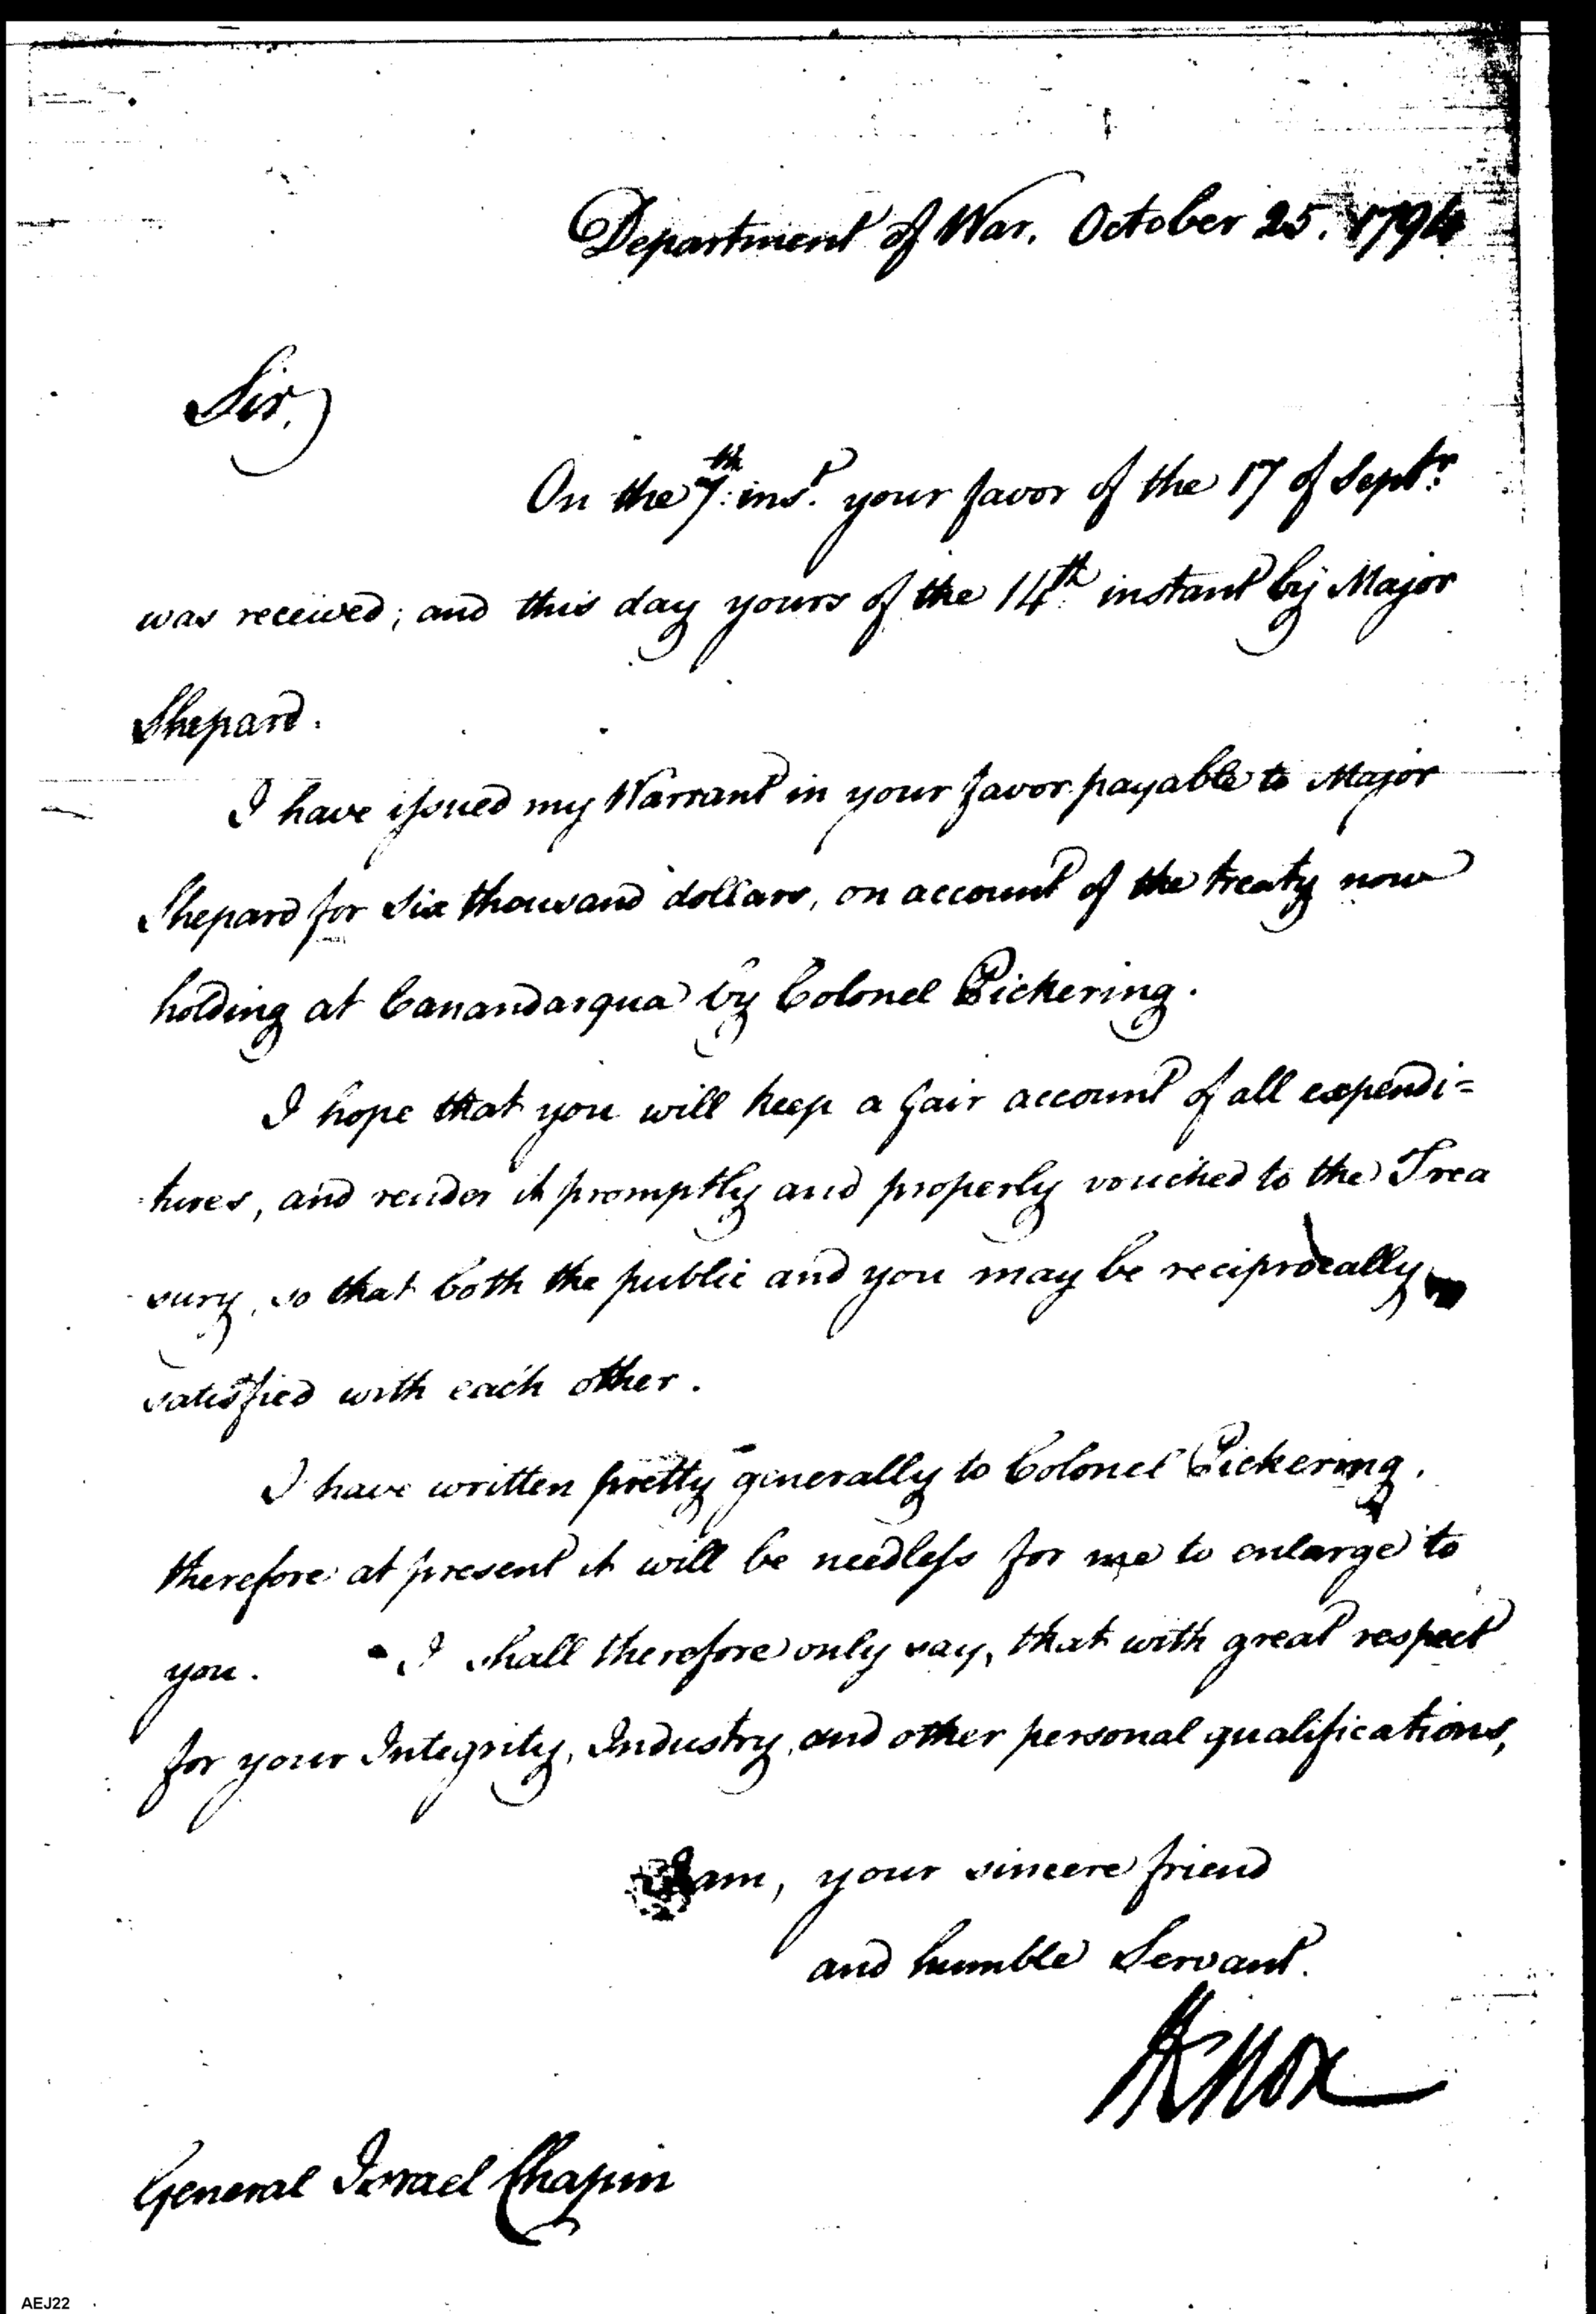 Department of War. October 25. 1794
Sir,
On the 7th: inst. your favor of the 17 of Septr:
was received; and this day yours of the 14th: instant by Major
Shepard.
I have issued my Warrant in your favor payable to Major
Shepard for six thousand dollars, on account of the treaty now
holding at Canandarqua by Colonel Pickering.
I hope that you will keep a fair account of all expendi=
tures, and render it promptly and properly vouched to the Trea
sury, so that both the public and you may be reciprocally
satisfied with each other.
I have written pretty generally to Colonel Pickering,
therefore at present it will be needless for me to enlarge to
you. - I shall therefore only say, that with great respect
for your Integrity, Industry, and other personal qualifications,
I am, your sincere friend
and humble Servant.
HKnox
General Israel Chapin
AEJ22